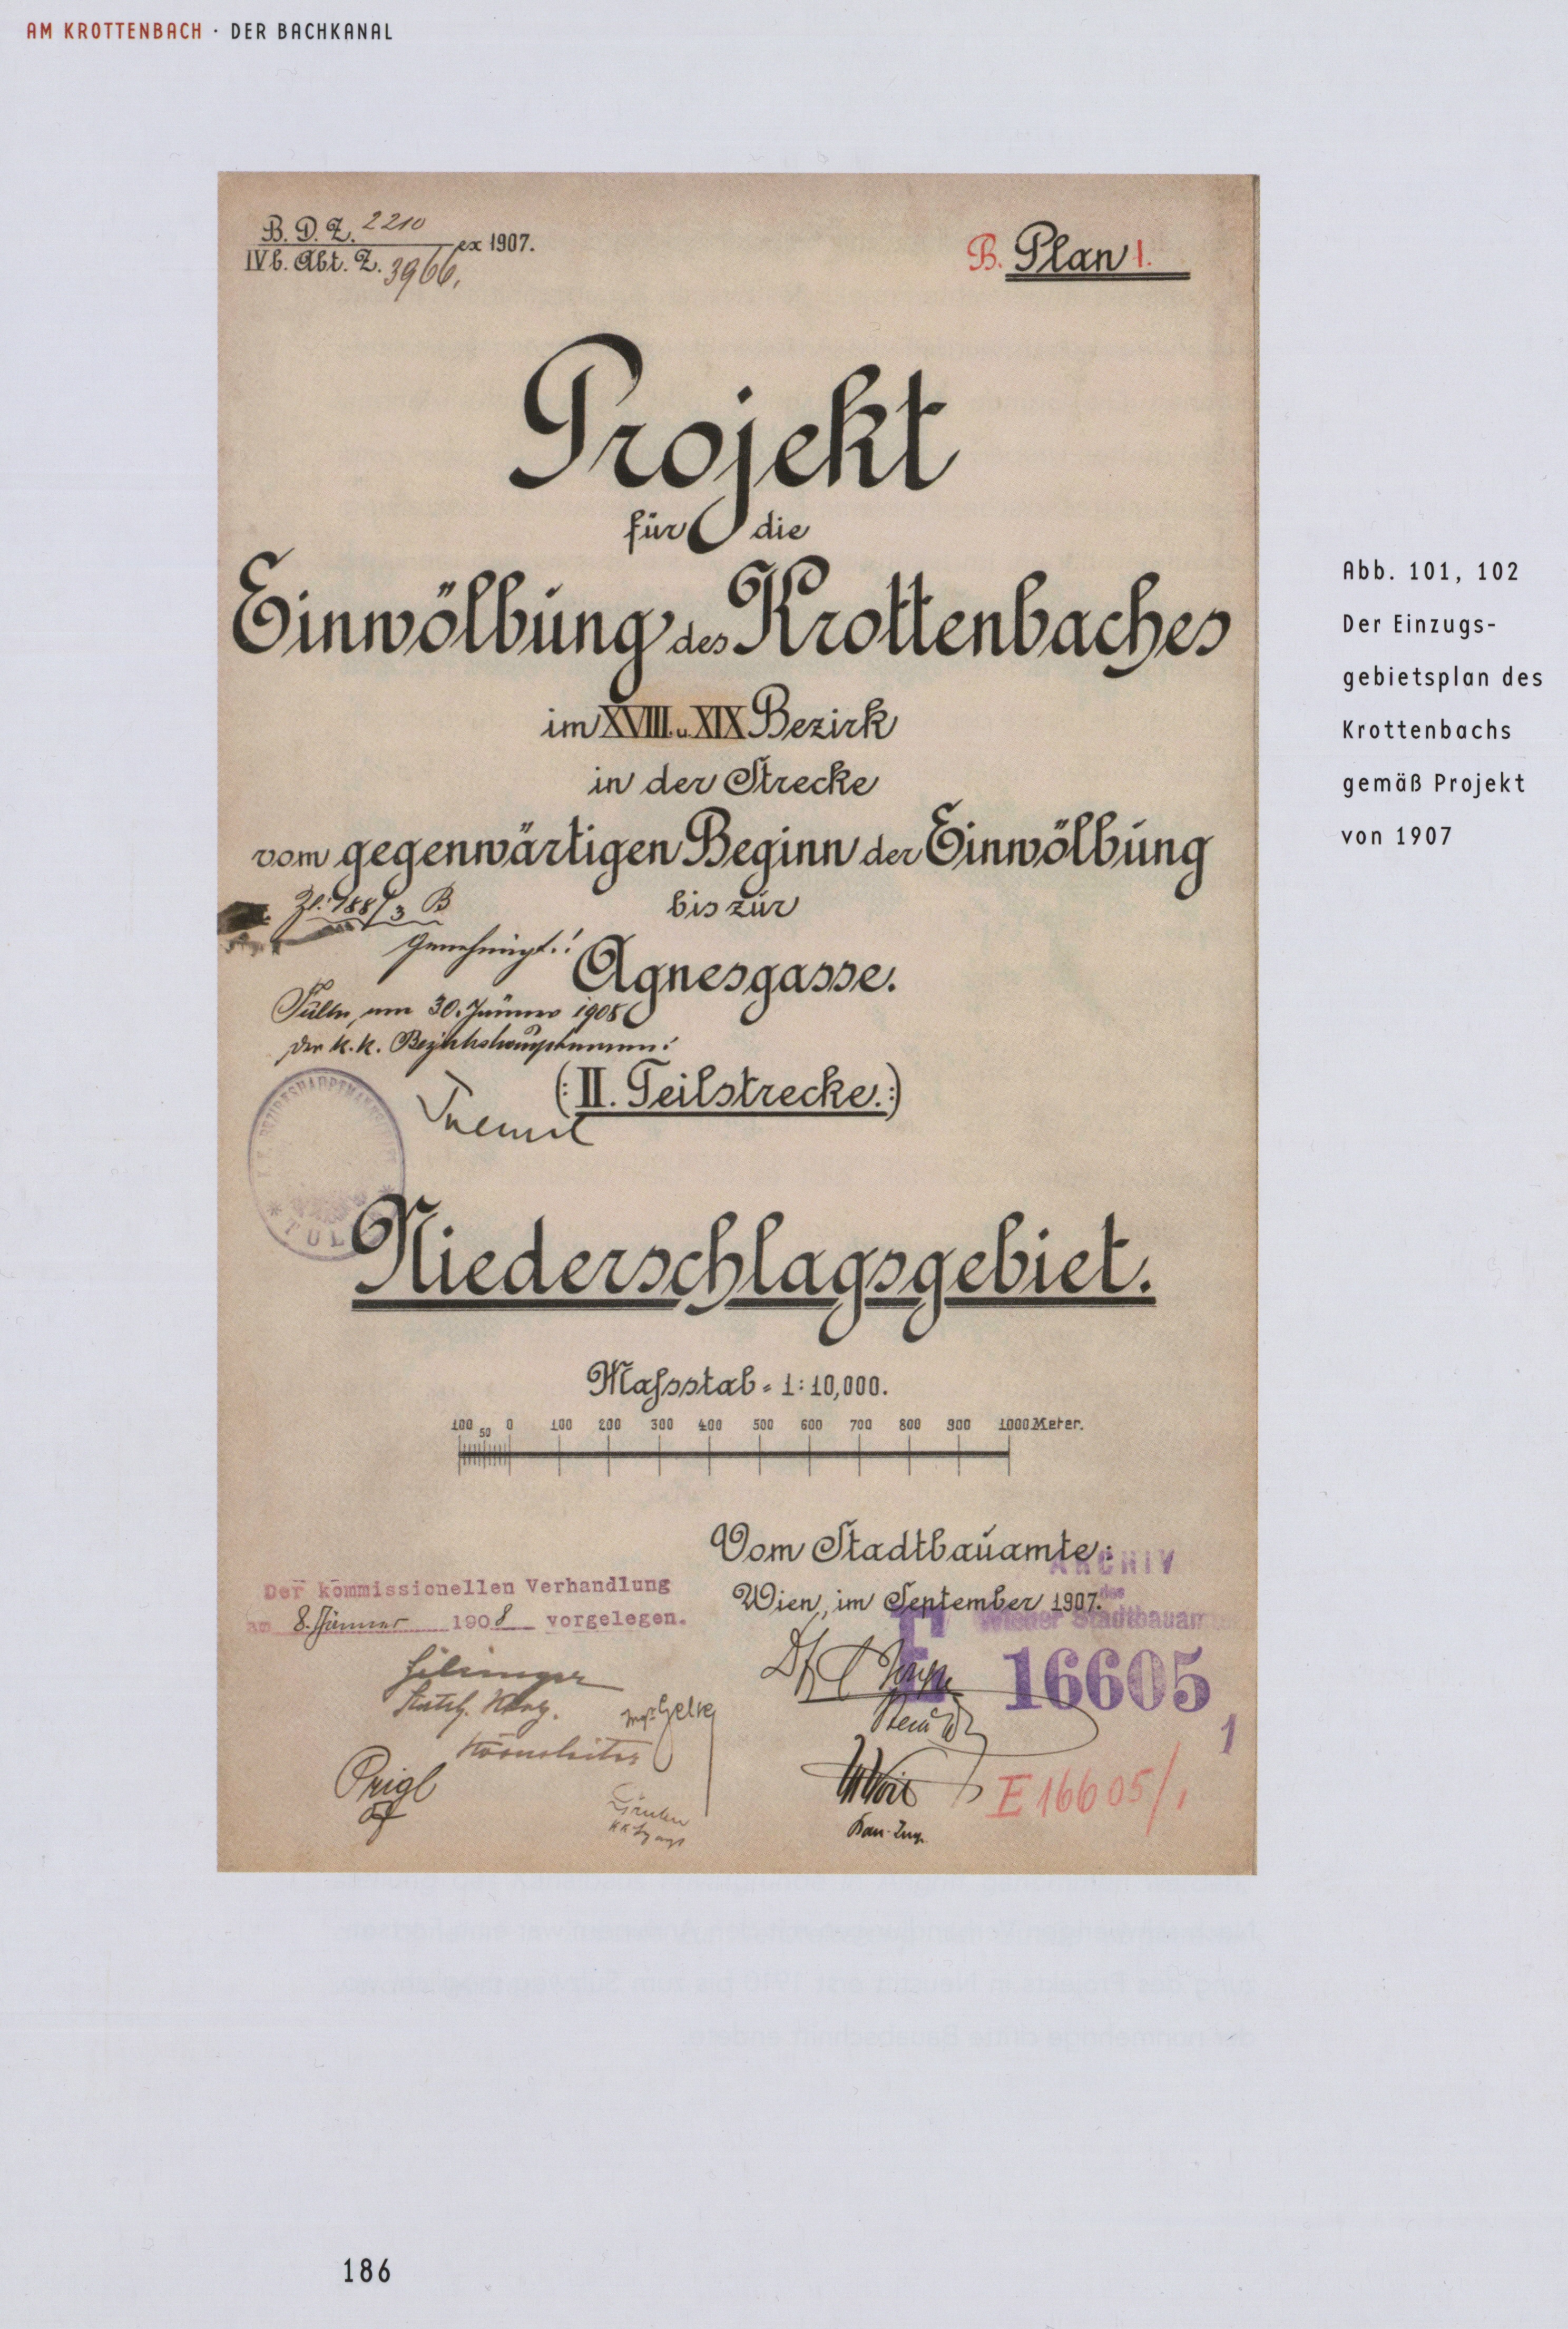 AM KROTTENBACH · DER BACHKANAL
B. D. Z. 2210
IV b. Abt. Z. 3966, ex 1907.
B. Plan 1.
Projekt
für die
Einwölbung des Krottenbaches
im XVIII. u. XIX Bezirk
in der Strecke
vom gegenwärtigen Beginn der Einwölbung
bis zur
Agnesgasse.
Zl. 188/3 B
Genehmigt!
Tulln, am 30. Jänner 1908
Der k.k. Bezirkshauptmann:
(: II. Teilstrecke. :)
Niederschlagsgebiet.
Maſsstab = 1:10,000.
100 50 0 100 200 300 400 500 600 700 800 900 1000 Meter.
Vom Stadtbauamte:
Wien, im September 1907.
ARCHIV
des
Wiener Stadtbauam
E 16605
1
Der kommissionellen Verhandlung
am 8. Jänner 1908 vorgelegen.
Prigl
Bau-Ing.
E 16605/1
Abb. 101, 102
Der Einzugs-
gebietsplan des
Krottenbachs
gemäß Projekt
von 1907
186